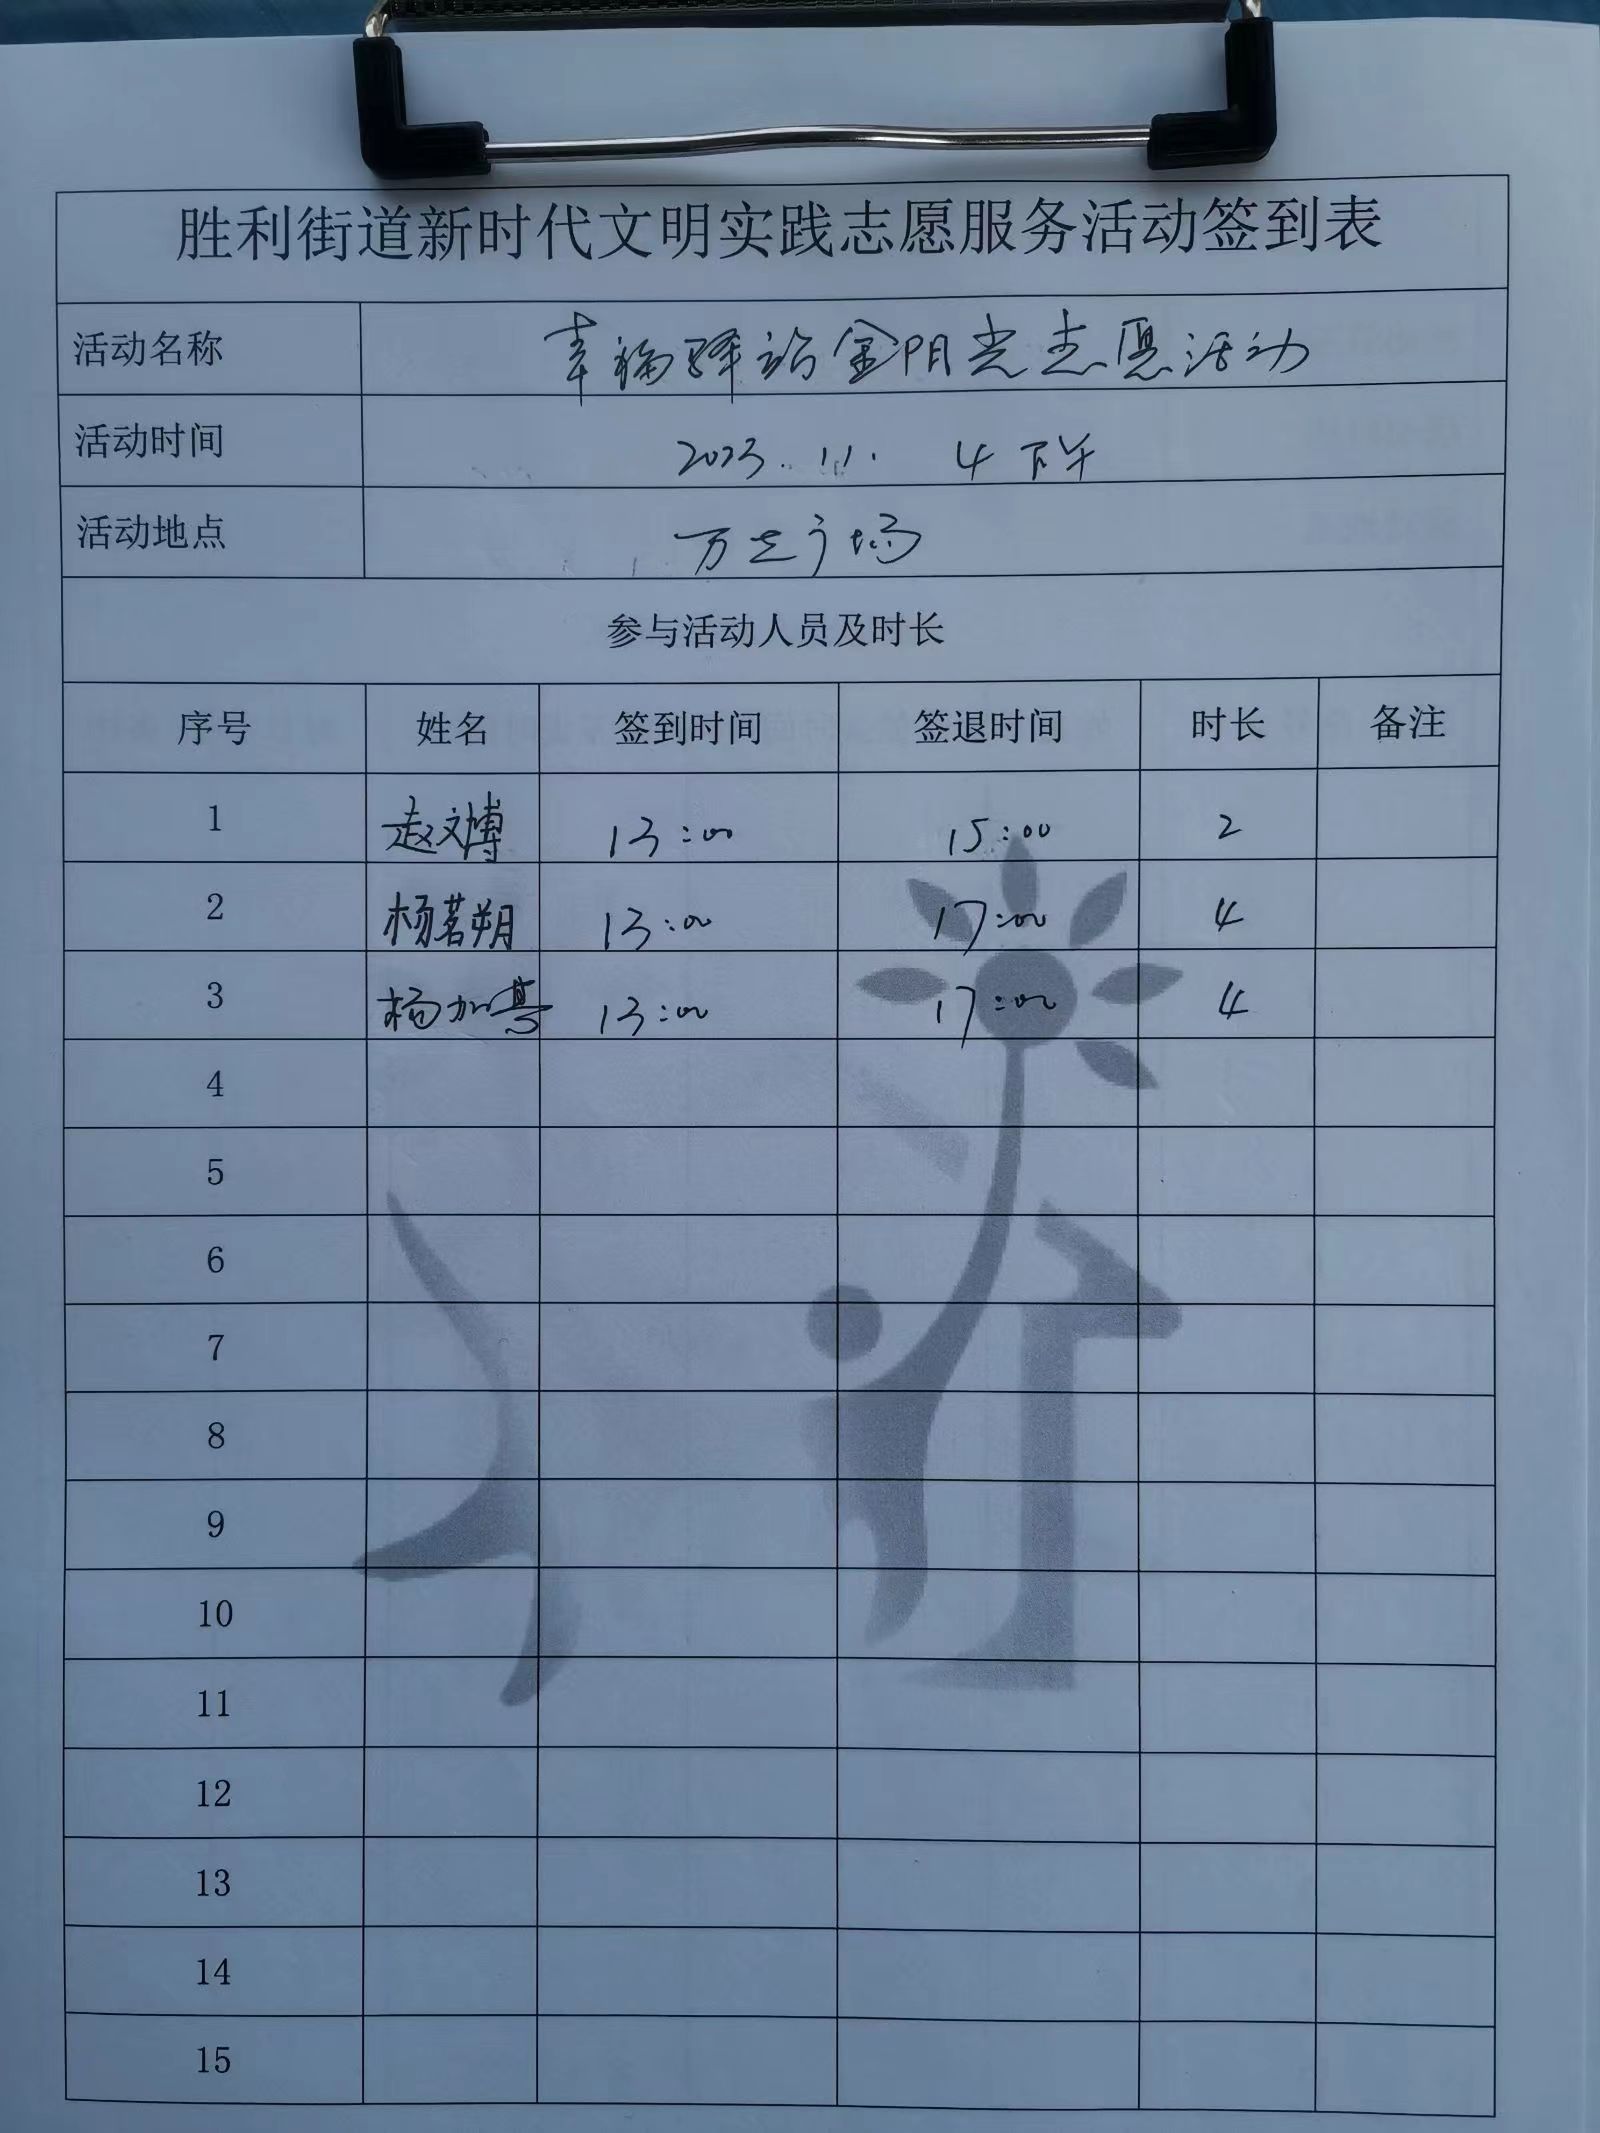 胜利街道新时代文明实践志愿服务活动签到表
活动名称 幸福驿站金阳光志愿活动
活动时间 2023.11. 4 下午
活动地点 万达广场
参与活动人员及时长
序号 姓名 签到时间 签退时间 时长 备注
1 赵文博 13:00 15:00 2
2 杨茗朔 13:00 17:00 4
3 杨加 13:00 17:00 4
4
5
6
7
8
9
10
11
12
13
14
15